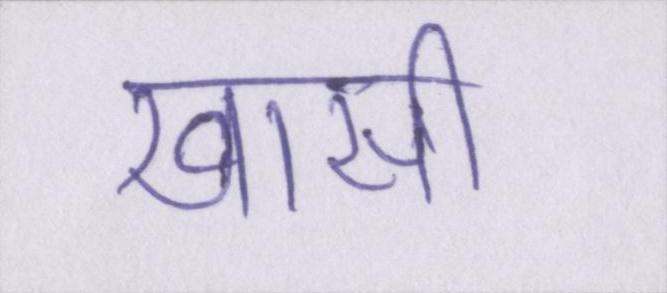 खासी